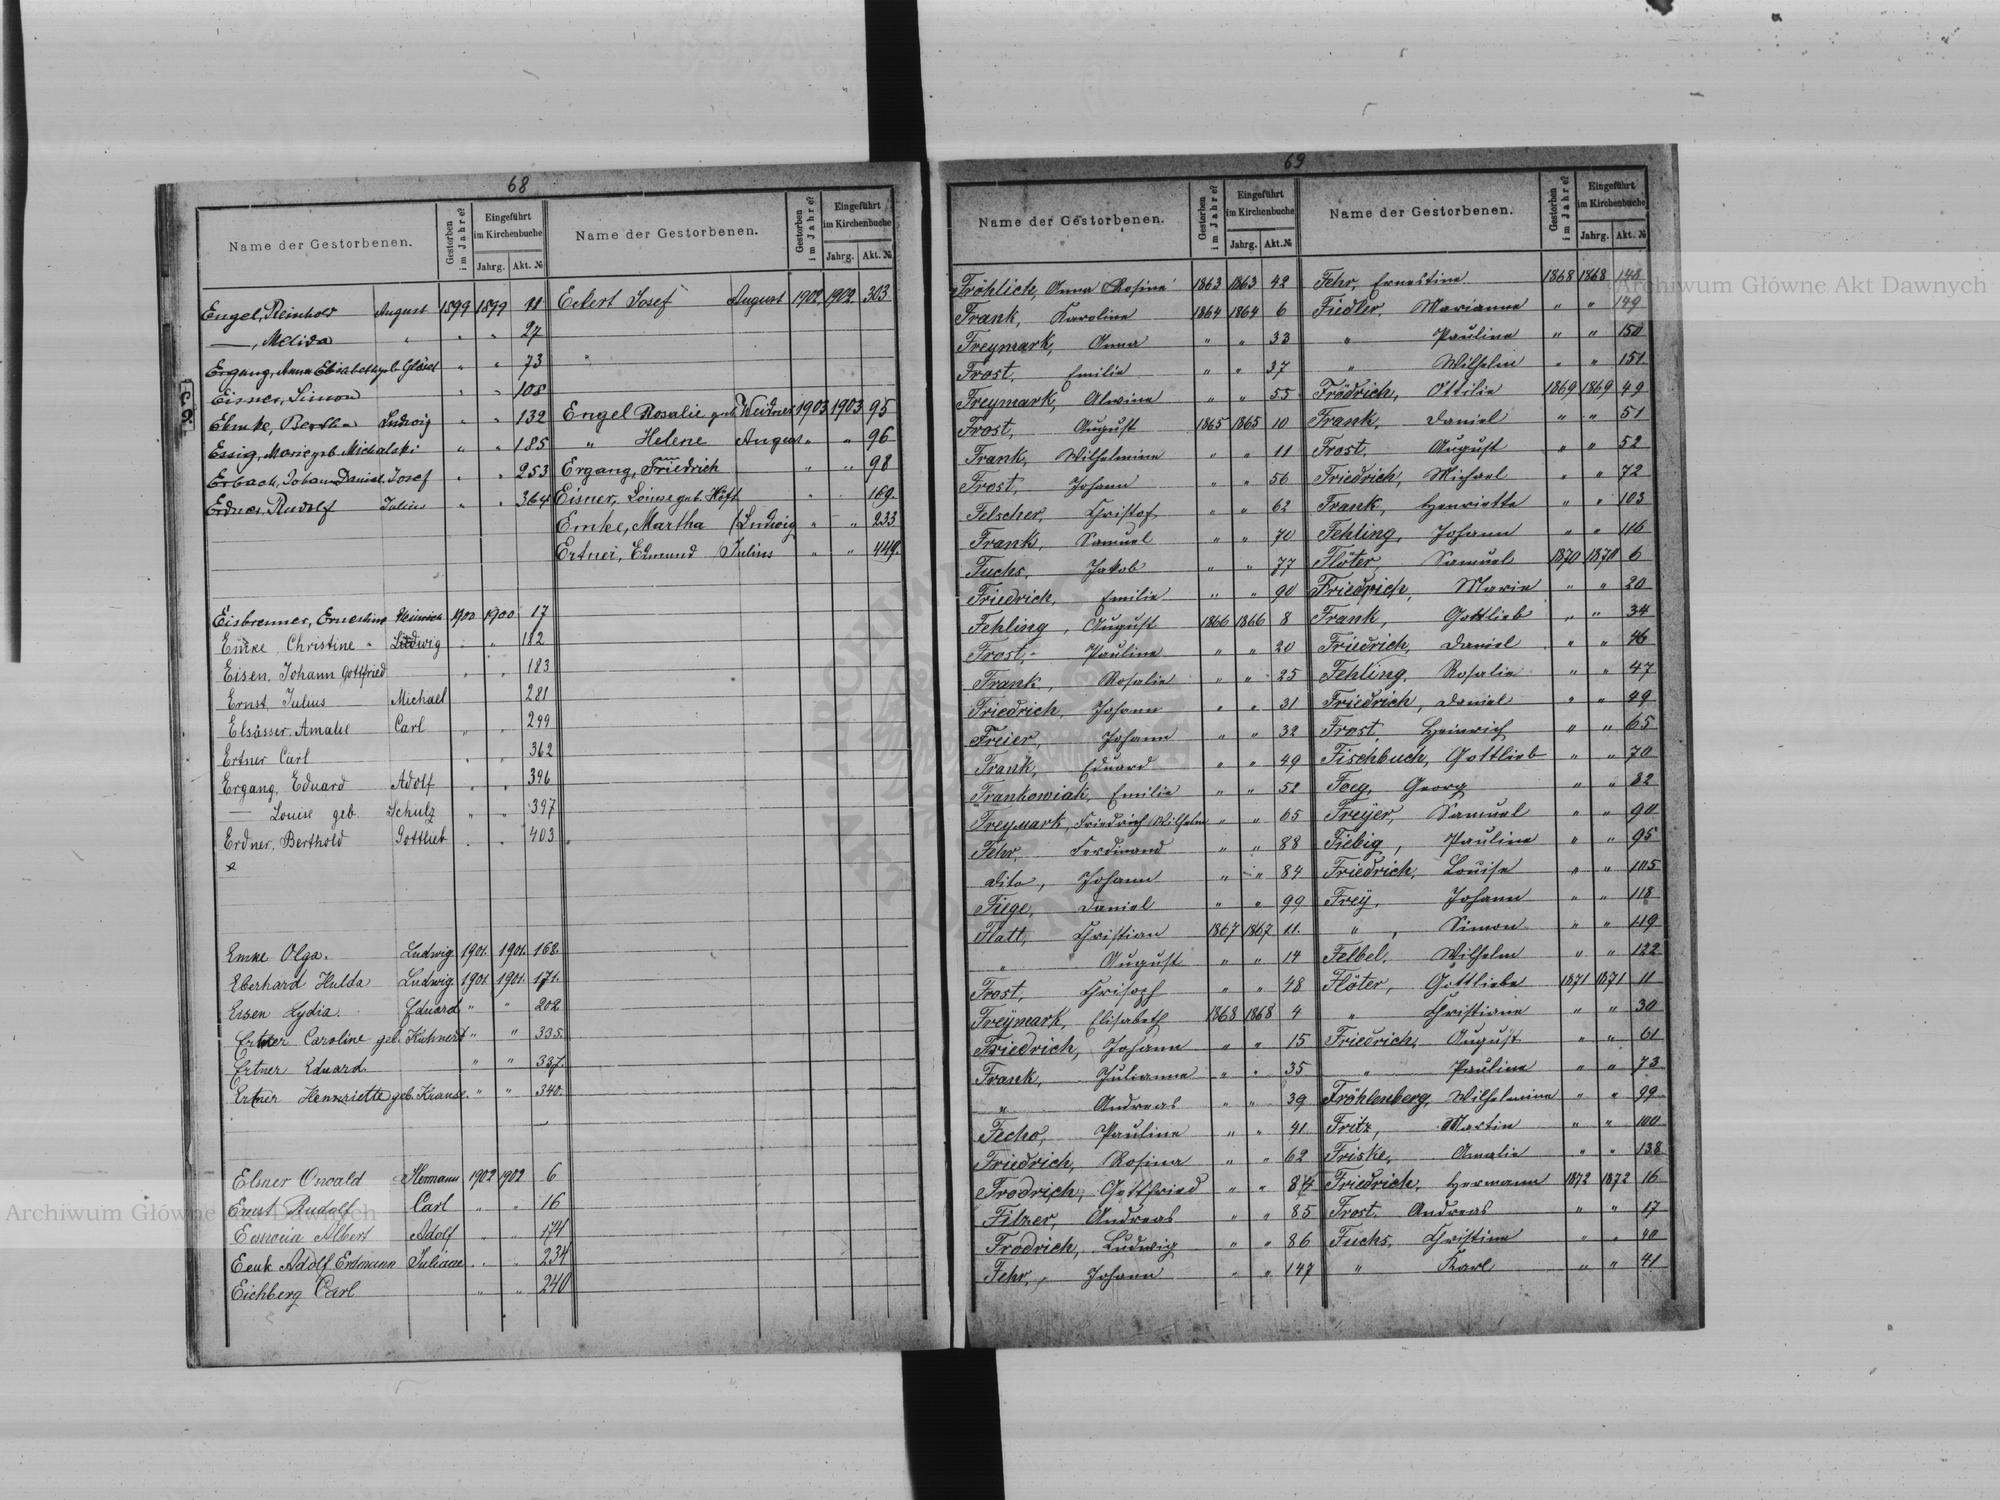 68
Name der Gestorbenen. Gestorben im Jahre? Eingeführt im Kirchenbuche Jahrg. Akt. №
Engel, Reinhold August 1899 1899 11
—, Melida " " " 27
Ergang, Anna Elisabeth geb. Gläsel " " 73
Eisner, Simon " " 108
Emke, Bertha Ludwig " " 132
Essig, Marie geb. Michalski " " 185
Erbach, Johann Daniel Josef " " 253
Erdner, Rudolf Julius " " 364
Eisbrenner, Ernestine Heinrich 1900 1900 17
Emke Christine Ludwig " " 182
Eisen, Johann Gottfried " " 183
Ernst, Julius Michael 281
Elsässer, Amalie Carl " " 299
Ertner Carl " " 362
Ergang, Eduard Adolf " " 396
— Louise geb. Schulz " " 397
Erdner, Berthold Gottlieb " " 403
Emke Olga. Ludwig 1901. 1901. 168.
Eberhard Hulda Ludwig 1901. 1901. 171.
Eisen Lydia. Eduard " " 202
Ertner Caroline geb. Kuhnert " " 335.
Ertner Eduard. " " 337.
Ertner Henriette geb. Krause. " " 340.
Elsner Oswald Hermann 1902 1902 6
Ernst Rudolf Carl " " 16
Albert Adolf " " 174
Adolf Erdmann " " 234
Eichberg Carl " " 240
Name der Gestorbenen. Gestorben im Jahre? Eingeführt im Kirchenbuche Jahrg. Akt. №
Eckert Josef August 1902 1902 303
Engel Rosalie geb. Weidner 1903 1903 95
" Helene August " " 96
Ergang, Friedrich " " 98
Eisner, Louise geb. Höft " 169.
Emke, Martha (Ludwig " " 233
Ertner, Edmund (Julius " " 449.
69
Name der Gestorbenen. Gestorben im Jahre? Eingeführt im Kirchenbuche Jahrg. Akt. №
Fröhlich, Anna Rosine 1863 1863 42
Frank, Karoline 1864 1864 6
Freymark, Anna " " 33
Frost, Emilie " " 37
Freymark, Alwine " " 55
Frost, August 1865 1865 10
Frank, Wilhelmine " " 11
Frost, Johann " " 56
Felscher, Christof " " 62
Frank, Samuel " " 70
Fuchs, Jakob " " 77
Friedrich, Emilie " " 90
Fehling, August 1866 1866 8
Frost, Pauline " " 20
Frank, Rosalie " " 25
Friedrich, Johann " " 31
Freier, Johann " " 32
Frank, Eduard " " 49
Frankowiak, Emilie " " 52
Freymark, Friedrich Wilhelm " " 65
Fehr, Ferdinand " " 88
dito, Johann " " 84
Fiege, Daniel " " 99
Flatt, Christian 1867 1867 11.
" August " " 14
Frost, Christoph " " 48
Freymark, Elisabeth 1868 1868 4
Friedrich, Johann " " 15
Frank, Julianna " " 35
" Andreas " " 39
Fecho, Pauline " " 41
Friedrich, Rosina " " 62
Frodrich, Gottfried " " 84
Filzner, Andreas " " 85
Frodrich, Ludwig " " 86
Fehr, Johann " " 147
Name der Gestorbenen. Gestorben im Jahre? Eingeführt im Kirchenbuche Jahrg. Akt. №
Fehr, Ernestine 1868 1868 148
Fiedler, Marianne " " 149
" Pauline " " 150
" Wilhelm " " 151
Frödrich, Ottilie 1869 1869 49
Frank, Daniel " " 51
Frost, August " " 52
Friedrich, Michael " " 72
Frank, Henriette " " 103
Fehling, Johann " " 116
Flöter, Samuel 1870 1870 6
Friedrich, Marie " " 20
Frank, Gottlieb " " 34
Friedrich, Daniel " " 46
Fehling, Rosalie " " 47
Friedrich, Daniel " " 49
Frost, Heinrich " " 65
Fischbuch, Gottlieb " " 70
Foeg, Georg " " 82
Freyer, Samuel " " 90
Fiebig, Pauline " " 95
Friedrich, Louise " " 105
Frey, Johann " " 118
" , Simon " " 119
Felbel, Wilhelm " " 122
Flöter, Gottliebe 1871 1871 11
" Christiane " " 30
Friedrich, August " " 61
" Pauline " " 73
Fröhlenberg, Wilhelmine " " 99
Fritz, Martin " " 100
Friske, Amalie " " 138
Friedrich, Hermann 1872 1872 16
Frost, Andreas " " 17
Fuchs, Christine " " 40
" Karl " " 41
Archiwum Główne Akt Dawnych
Archiwum Główne Akt Dawnych